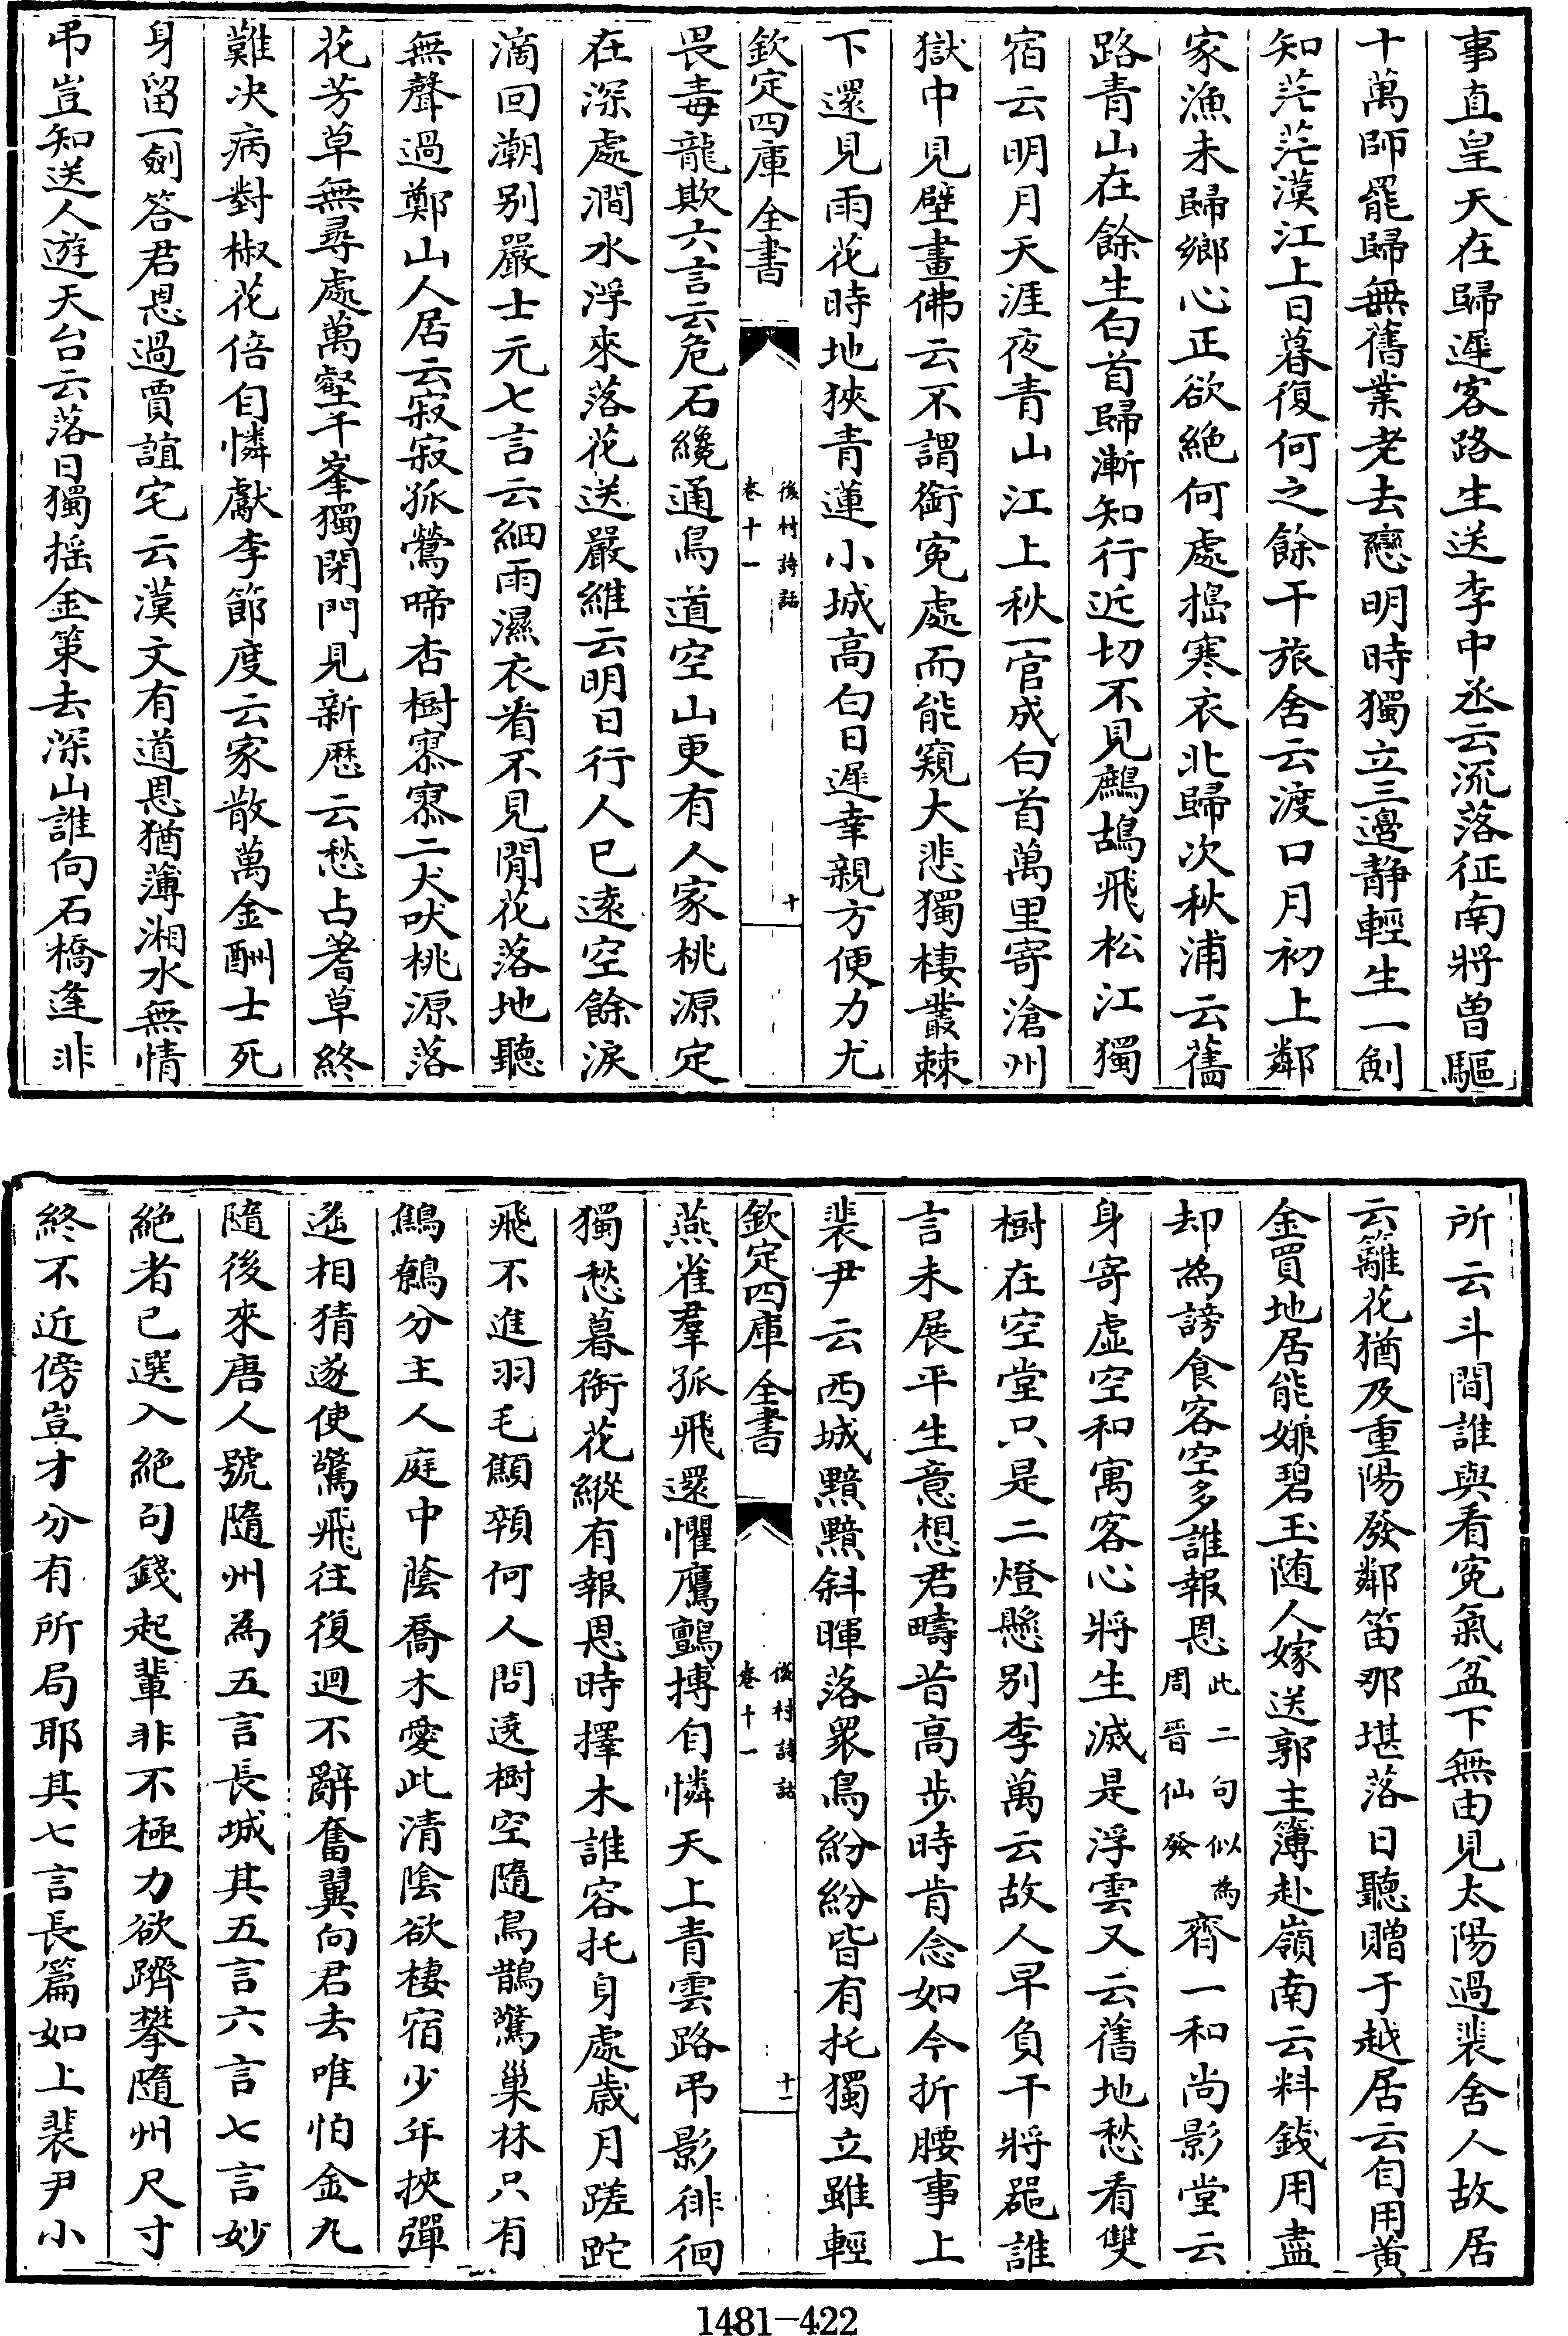 事直皇天在歸遲客路生送李中丞云流落征南將曽驅
十萬師罷歸無舊業老去戀明時獨立三邊静輕生一劍
知茫茫漠江上日暮復何之餘干旅舍云渡口月初上鄰
家漁未歸鄉心正欲絶何處搗寒衣北歸次秋浦云舊
路青山在餘生白首歸漸知行近切不見鷓鴣飛松江獨
宿云明月天涯夜青山江上秋一官成白首萬里寄滄州
獄中見壁畫佛云不謂銜寃處而能窺大悲獨棲叢棘
下還見雨花時地狹青蓮小城高白日遲幸親方便力尤
欽定四庫全書
後村詩話
卷十一
十
畏毒龍欺六言云危石纔通鳥道空山更有人家桃源定
在深處澗水浮來落花送嚴維云明日行人已遠空餘淚
滴回潮别嚴士元七言云細雨濕衣看不見閒花落地聽
無聲過鄭山人居云寂寂孤鶯啼杏樹寥寥二犬吠桃源落
花芳草無尋處萬壑千峯獨閉門見新厯云愁占蓍草終
難決病對椒花倍自憐獻李節度云家散萬金酬士死
身留一劍答君恩過賈誼宅云漢文有道恩猶薄湘水無情
弔豈知送人遊天台云落日獨摇金策去深山誰向石橋逢非
所云斗間誰與看寃氣盆下無由見太陽過裴舍人故居
云籬花猶及重陽發鄰笛那堪落日聽贈于越居云自用黄
金買地居能嫌碧玉随人嫁送郭主簿赴嶺南云料錢用盡
却為謗食客空多誰報恩此二句似為周晋仙發齊一和尚影堂云
身寄虚空和寓客心將生滅是浮雲又云舊地愁看雙
樹在空堂只是二燈懸别李萬云故人早負干將噐誰
言未展平生意想君疇昔高歩時肯念如今折腰事上
裴尹云西城黯黯斜暉落衆鳥紛紛皆有托獨立雖輕
欽定四庫全書
後村詩話
卷十一
十一
燕雀羣孤飛還懼鷹鸇搏自憐天上青雲路弔影徘徊
獨愁暮銜花縱有報恩時擇木誰容托身處歲月蹉跎
飛不進羽毛顦顇何人問遶樹空隨鳥鵲驚巢林只有
鷦鷯分主人庭中蔭喬木愛此清陰欲棲宿少年挾彈
遥相猜遂使驚飛往復迴不辭奮翼向君去唯怕金丸
隨後來唐人號隨州為五言長城其五言六言七言妙
絶者已選入絶句錢起輩非不極力欲躋攀隨州尺寸
終不近傍豈才分有所局耶其七言長篇如上裴尹小
1481-422